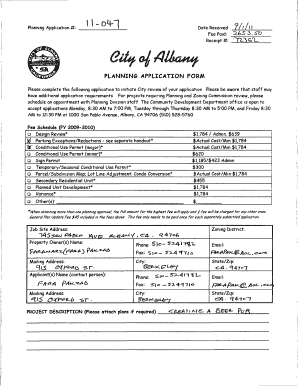 Planning Application #: 11-047
Date Received: 9/1/11
Fee Paid: 2653.50
Receipt #: 72352
City of Albany
PLANNING APPLICATION FORM
Please complete the following application to initiate City review of your application. Please be aware that staff may
have additional application requirements. For projects requiring Planning and Zoning Commission review, please
schedule an appointment with Planning Division staff. The Community Development Department office is open to
accept applications Monday, 8:30 AM to 7:00 PM, Tuesday through Thursday 8:30 AM to 5:00 PM, and Friday 8:30 AM
to 12:30 PM at 1000 San Pablo Avenue, Albany, CA 94706 (510) 528-5760
Fee Schedule (FY 2009-2010)
Design Review* $1,784 / Admin. $639
Parking Exceptions/Reductions – see separate handout* $Actual Cost/Min $1,784
Conditional Use Permit (major)* $Actual Cost/Min $1,784
Conditional Use Permit (minor) $620
Sign Permit $1,185/$423 Admin
Temporary/Seasonal Conditional Use Permit* $300
Parcel/Subdivision Map; Lot Line Adjustment; Condo Conversion* $Actual Cost/Min $1,784
Secondary Residential Unit* $455
Planned Unit Development* $1,784
Variance* $1,784
Other(s): $
Job Site Address:
ALBANY, CA. 94706
Zoning District:
Property Owner(s) Name:
Phone: 510-5241782
Fax: 510-5249710
Email:
Mailing Address:
915 OXFORD ST.
City:
BERKELEY
State/Zip:
CA. 94707
Applicant(s) Name (contact person):
FARA PAKZAD
Phone: 510-5241782
Fax: 510-5249710
Email:
Mailing Address:
915 OXFORD ST.
City:
BERKELEY
State/Zip:
CA. 94707
PROJECT DESCRIPTION (Please attach plans if required) CREATING A BEER PUB